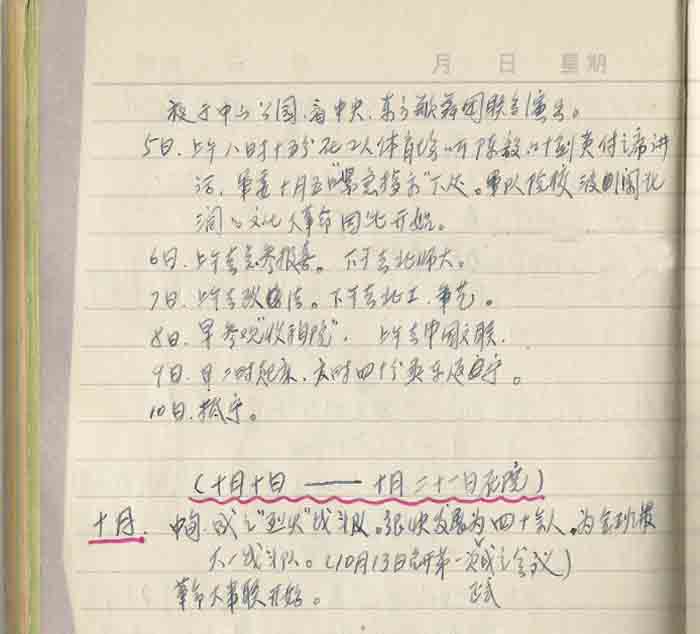 月 日 星期
夜于中山公园,看中央、东方歌舞团联合演出。
5日.上午八时十五分在工人体育场听陈毅、叶剑英付主席讲
话,军委十月五日"紧急指示"下达。军队院校
的文化大革命因此开始。
6日.上午去总参报告。下午去北师大。
7日.上午去政法。下午去北工、军艺。
8日.早参观"收租院",上午去中国文联.
9日.早二时起床,六时四十分乘车返宁。
10日.抵宁。
(十月十日 —— 十月二十一日在院)
十月.中旬.成立"烈火"战斗队。很快发展为四十余人,为全
大一战斗队。(10月13日召开第一次成立会议)
正式
革命大串联开始。